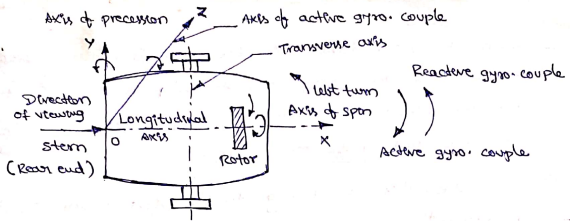 Axis of precession
Z
Axis of active gyro. couple
Y
Transverse axis
Left turn
Reactive gyro. couple
Direction
of viewing
Longitudinal
axis
Axis of spin
O
X
stern
(Rear end)
Rotor
Active gyro. couple